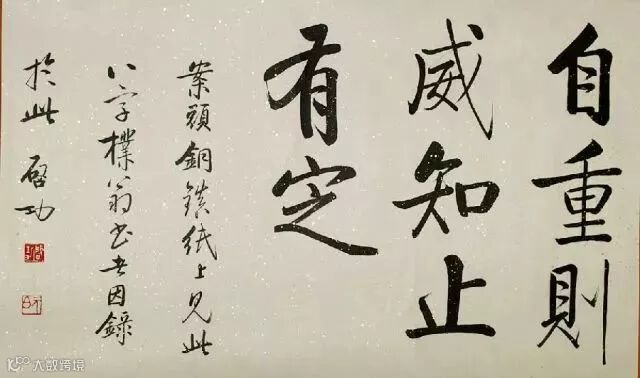 自重則
威知止
有定
案頭銅鎮紙上見此
八字樸翁書者因錄
於此 啓功
大数跨境